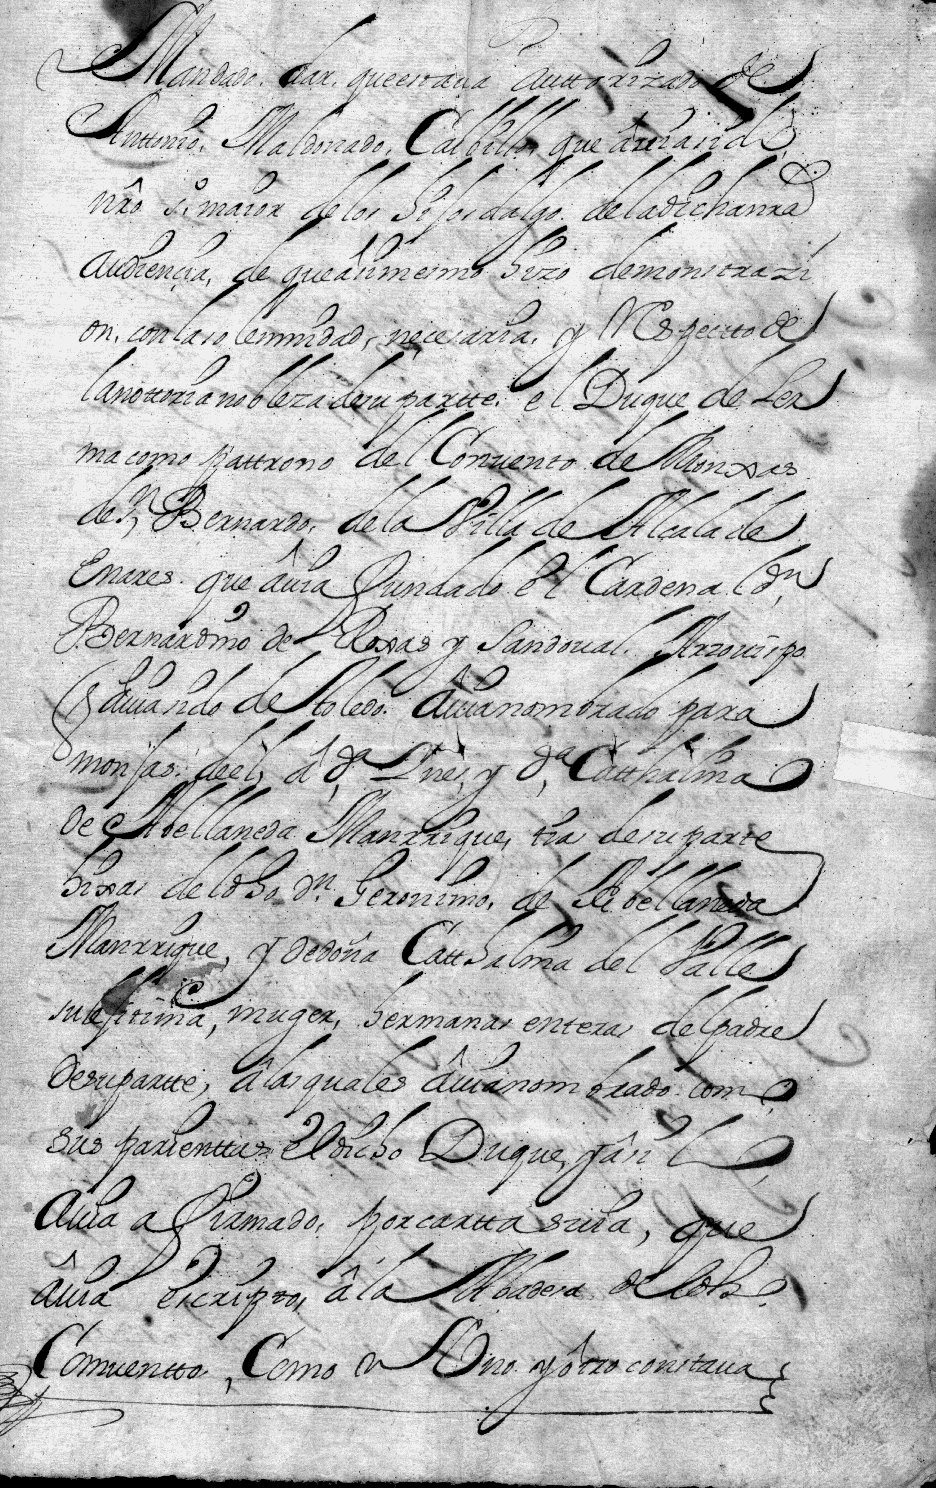 Mandado. dar. queestaua auttorizado de
Anttonio. Maldonado. Calbillo, que âuia sido
nrô sº. maior de los hijosdalgo. deladicha nrâ
audiençia, de que âsimesmo hizo demonstrazi
on, con la solemnidad, neçesaria, y Respectto de
lanottoria nobleza desu partte. el Duque de Ler
ma como pattrono del Conuento de Monxas
de Sn Bernardo, de la Villa de Alcala de
Enares. que âuia fundado êl Cardenal dn
Bernardino de Roxas y Sandoual. Arzouispo
que fue de Toledo. âuia nombrado para
monjas. deel, â dª Ynes, y dª Catthalina
de Abellaneda Manrrique, tias desu parte
hixas del dho dn. Geronimo, de Abellaneda
Manrrique, y de doña Catthalina del Valle
su lejitima, muger, hermanas enteras del padre
desu partte, âlas quales âuia nombrado como
sus parienttas el dicho Duque, y âsi lo
auia afirmado, por cartta suia, que
âuia escripto, â la Abadesa del dho
Comuentto, Como Uno y ôtro constaua